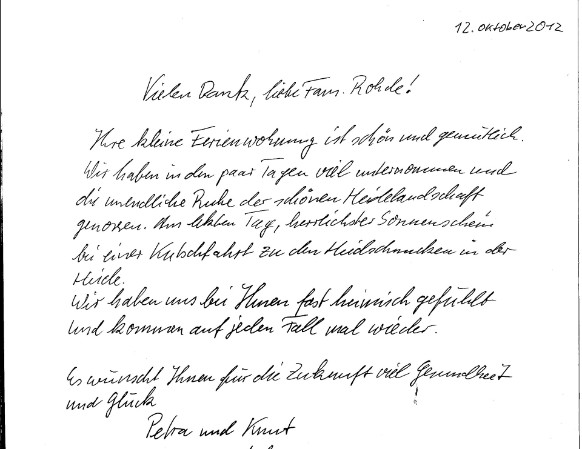 12. Oktober 2012
Vielen Dank, liebe Fam. Rohde!
Ihre kleine Ferienwohnung ist schön und gemütlich.
Wir haben in den paar Tagen viel unternommen und
die unendliche Ruhe der schönen Heidelandschaft
genossen. Am letzten Tag, herrlichster Sonnenschein
bei einer Kutschfahrt zu den Heidschnucken in der
Heide.
Wir haben uns bei Ihnen fast heimisch gefühlt
und kommen auf jeden Fall mal wieder.
Es wünscht Ihnen für die Zukunft viel Gesundheit
und Glück !
Petra und Knut